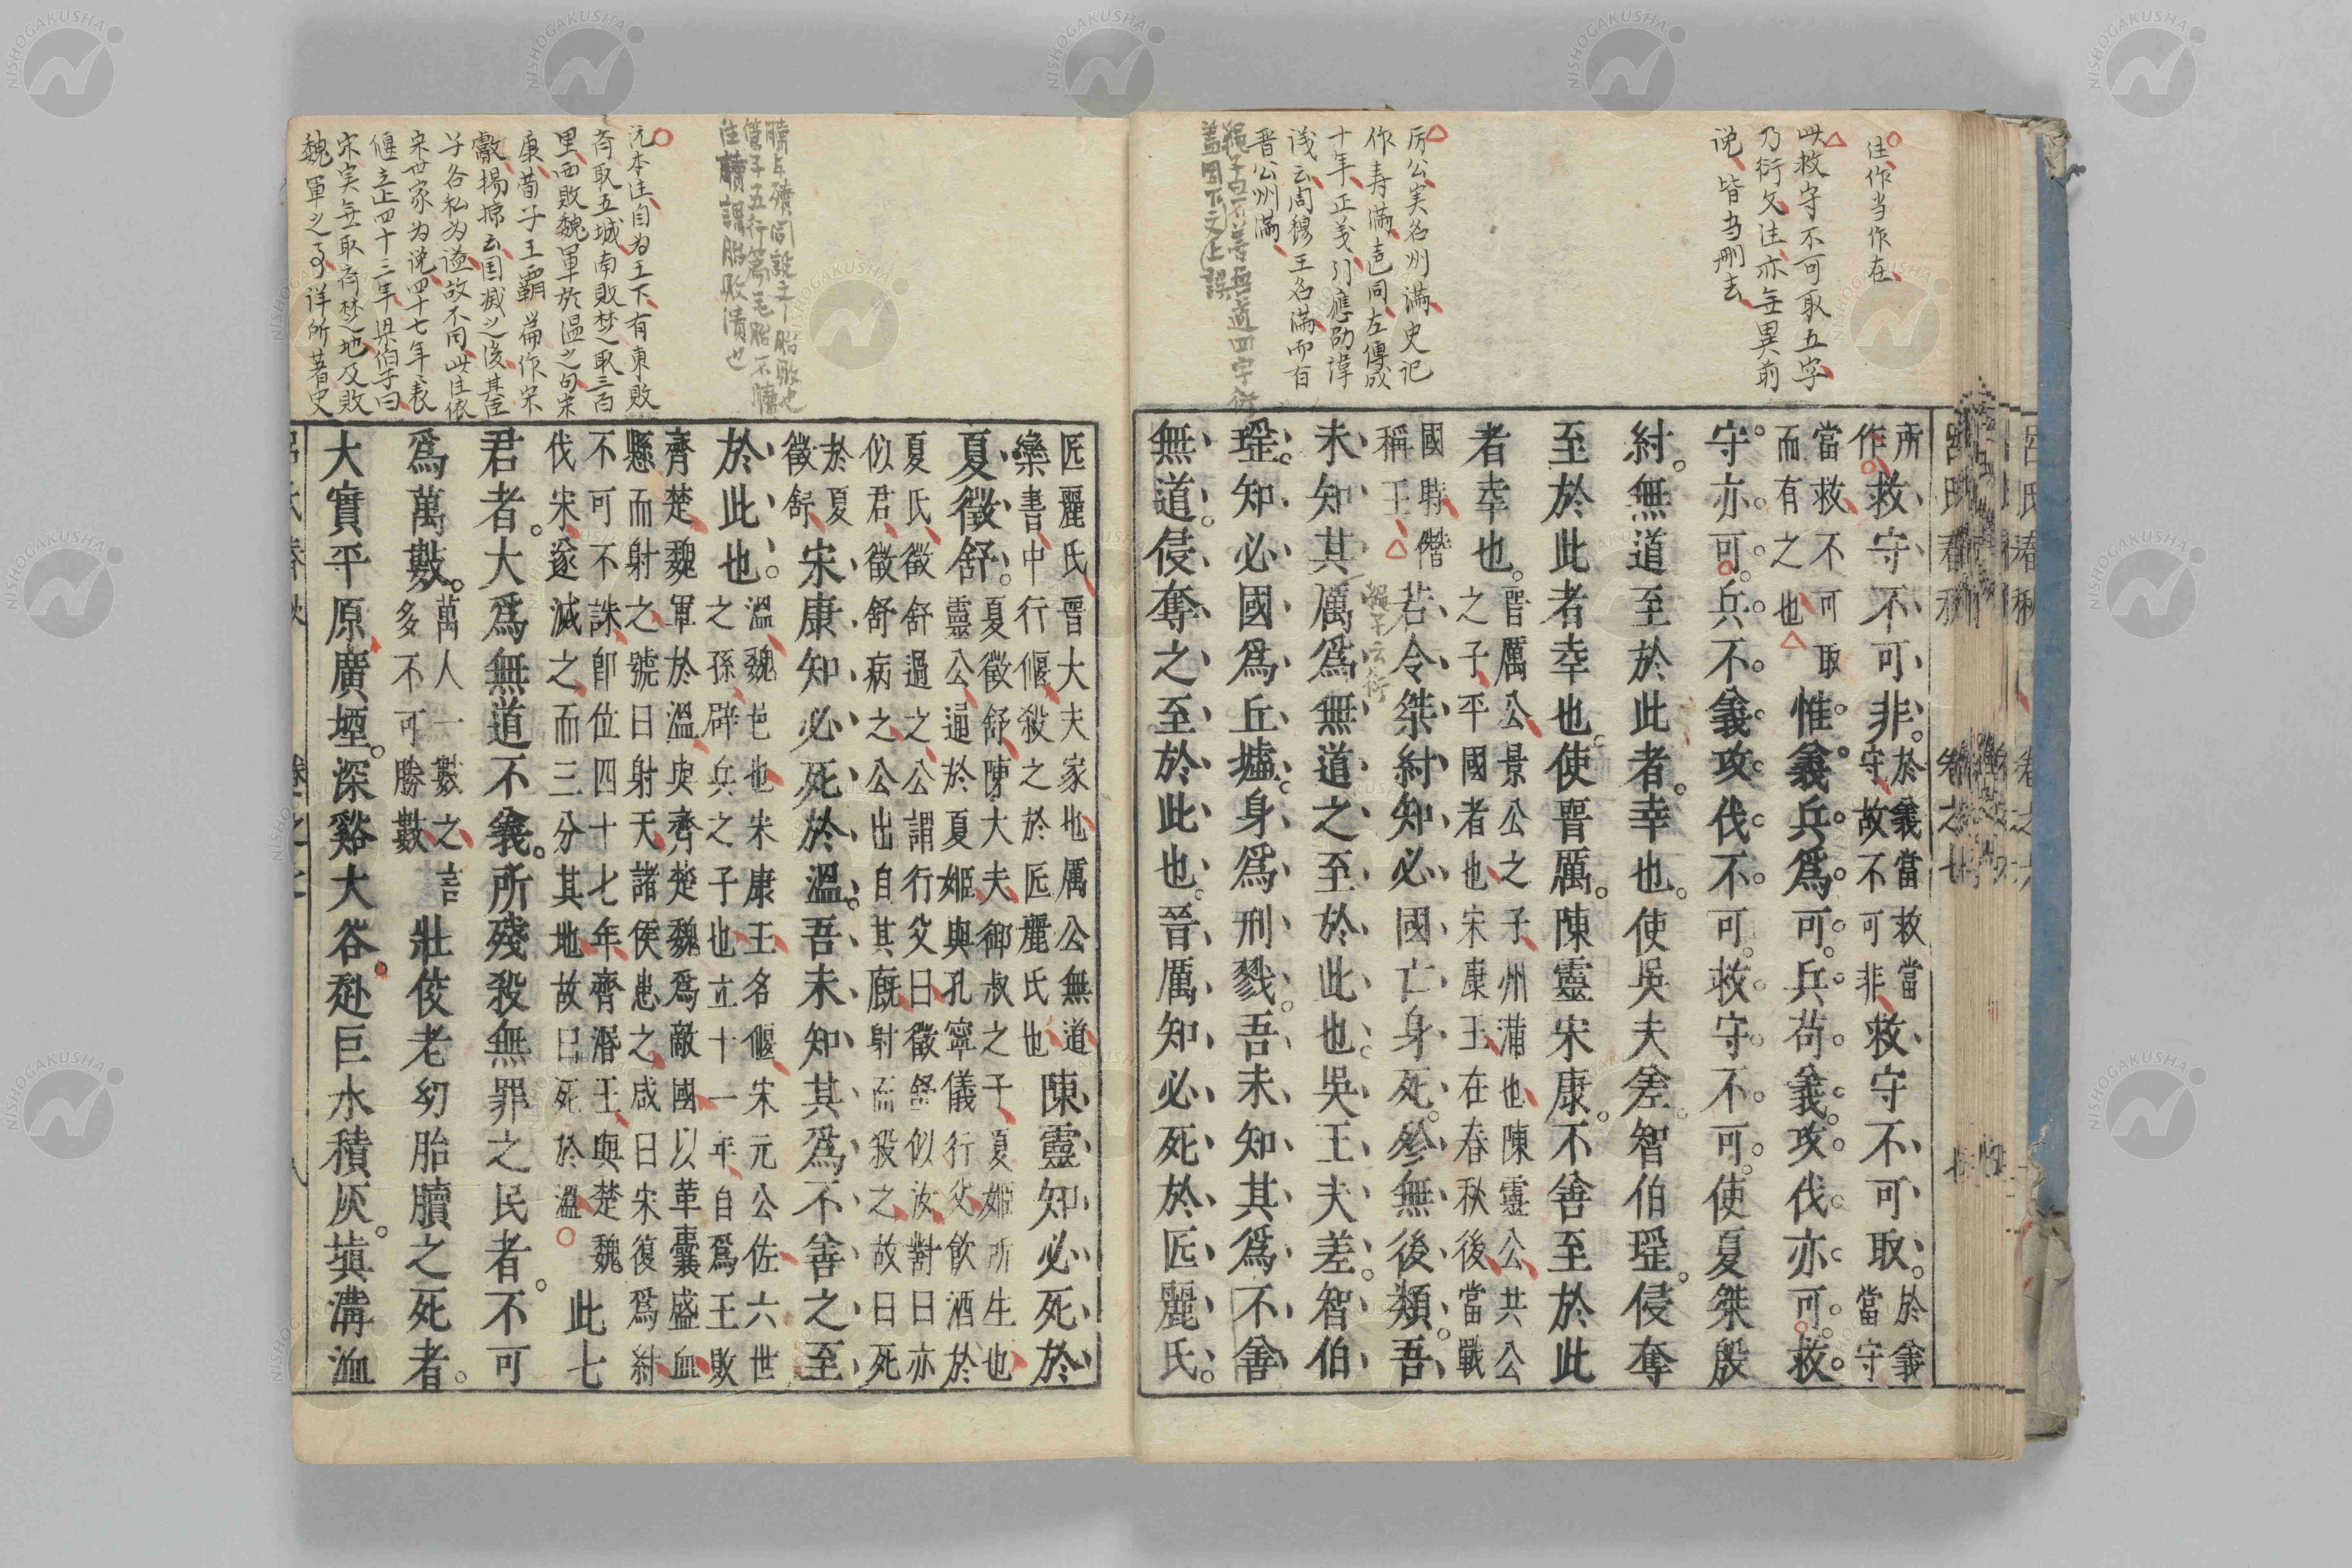 注作当作在
此救守不可取五字
乃衍文注亦無異前
说皆当刪去
厉公実名州满史记
作寿满邑同左傳成
十年正義引應劭諱
议云周穆王名满而有
晋公州满
所
作
救守不可非。
於義當救當
守故不可非
救守不可取。
於義
當守
當救不可取
而有之也
惟義兵爲可。兵苟義攻伐亦可。救
守亦可。兵不義攻伐不可。救守不可。使夏桀殷
紂。無道至於此者。幸也。使吳夫差。智伯瑶。侵奪
至於此者幸也。使晉厲。陳靈宋康。不善至於此
者幸也。
晉厲公景公之子州蒲也陳靈公共公
之子平國者也宋康王在春秋後當戰
國時僭
稱王
若令桀紂知必國亡身死。殄無後類。吾
未知其厲爲無道之至於此也。吳王夫差。智伯
瑶。知必國爲丘墟。身爲刑戮。吾未知其爲不善
無道。侵奪之至於此也。晉厲知必死於匠麗氏。
沅本注自为王下有東敗
斉取五城南敗楚取三百
里西敗魏軍於温之句宋
康荀子王覇篇作宋
獻楊倞云国滅之後其臣
子各私为谥故不同此注依
宋世家为说四十七年表
偃立止四十三年
宋実無取斉楚地及敗
魏軍之事詳所著史
匠麗氏晉大夫家也厲公無道
欒書中行偃殺之於匠麗氏也
陳靈知必死於
夏徵舒。
夏徵舒陳大夫御叔之子夏姬所生也
靈公通於夏姬與孔寧儀行父飲酒於
夏氏徵舒過之公謂行父曰徵舒似汝對曰亦
似君徵舒病之公出自其廄射而殺之故曰死
於夏
徵舒
宋康知必死於溫。吾未知其爲不善之至
於此也。
溫魏邑也宋康王名偃宋元公佐六世
之孫辟兵之子也立十一年自爲王敗
齊楚魏軍於溫與齊楚魏爲敵國以革囊盛血
縣而射之號曰射天諸侯患之咸曰宋復爲紂
不可不誅卽位四十七年齊湣王與楚魏
伐宋遂滅之而三分其地故曰死於溫
此七
君者。大爲無道不義。所殘殺無罪之民者。不可
爲萬數。
萬人一數之言
多不可勝數
壯佼老幼胎䐗之死者。
大實平原廣堙。深谿大谷赴巨水積灰。塡溝洫